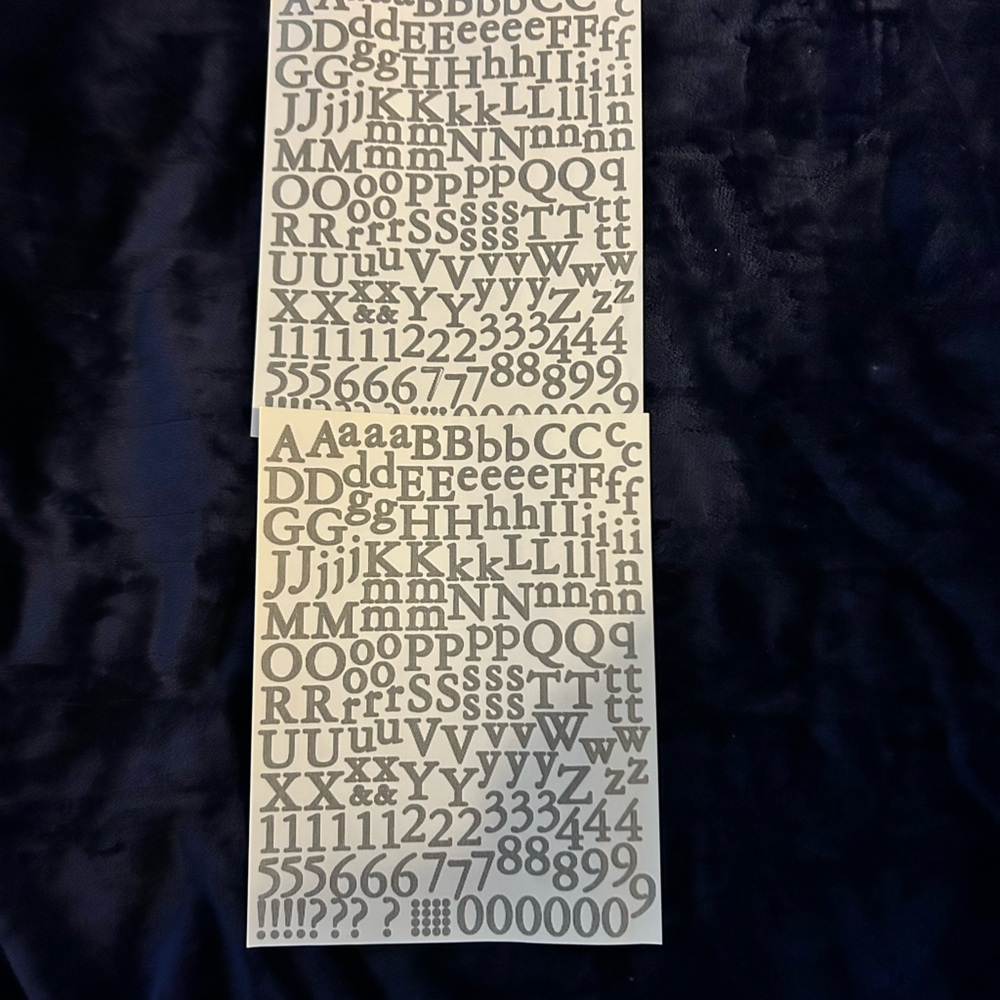 AAaaaBBbbbCCc
DDddEEeeeeFFff
GGggHHhhIIiiii
JJjjjKKkkLLllln
MMmmmmNNnnnn
OOooooPPppQQq
RRrrrSSssssssTTtttt
UUuuVVvvWww
XXxx&&YYyyyZzz
111111222333444
555666777888999
AAaaaBBbbCCcc
DDddEEeeeeFFff
GGggHHhhIIiiii
JJjjjKKkkLLllln
MMmmmmNNnnnn
OOooooPPppQQq
RRrrrSSssssssTTtttt
UUuuVVvvWww
XXxx&&YYyyyZzz
111111222333444
5556667778889999
!!!!???? 000000